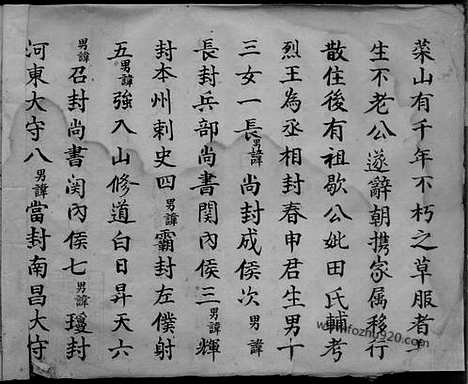 菜山有千年不朽之草服者
生不老公遂辭朝携家属移行
散住後有祖歇公妣田氏輔考
烈王為丞相封春申君生男十
三女一長男諱尚封成侯次男諱
長封兵部尚書関內侯三男諱輝
封本州剌史四男諱霸封左僕射
五男諱強入山修道白日昇天六
男諱召封尚書関內侯七男諱瓊封
河東大守八男諱當封南昌大守
www.fozhu920.com